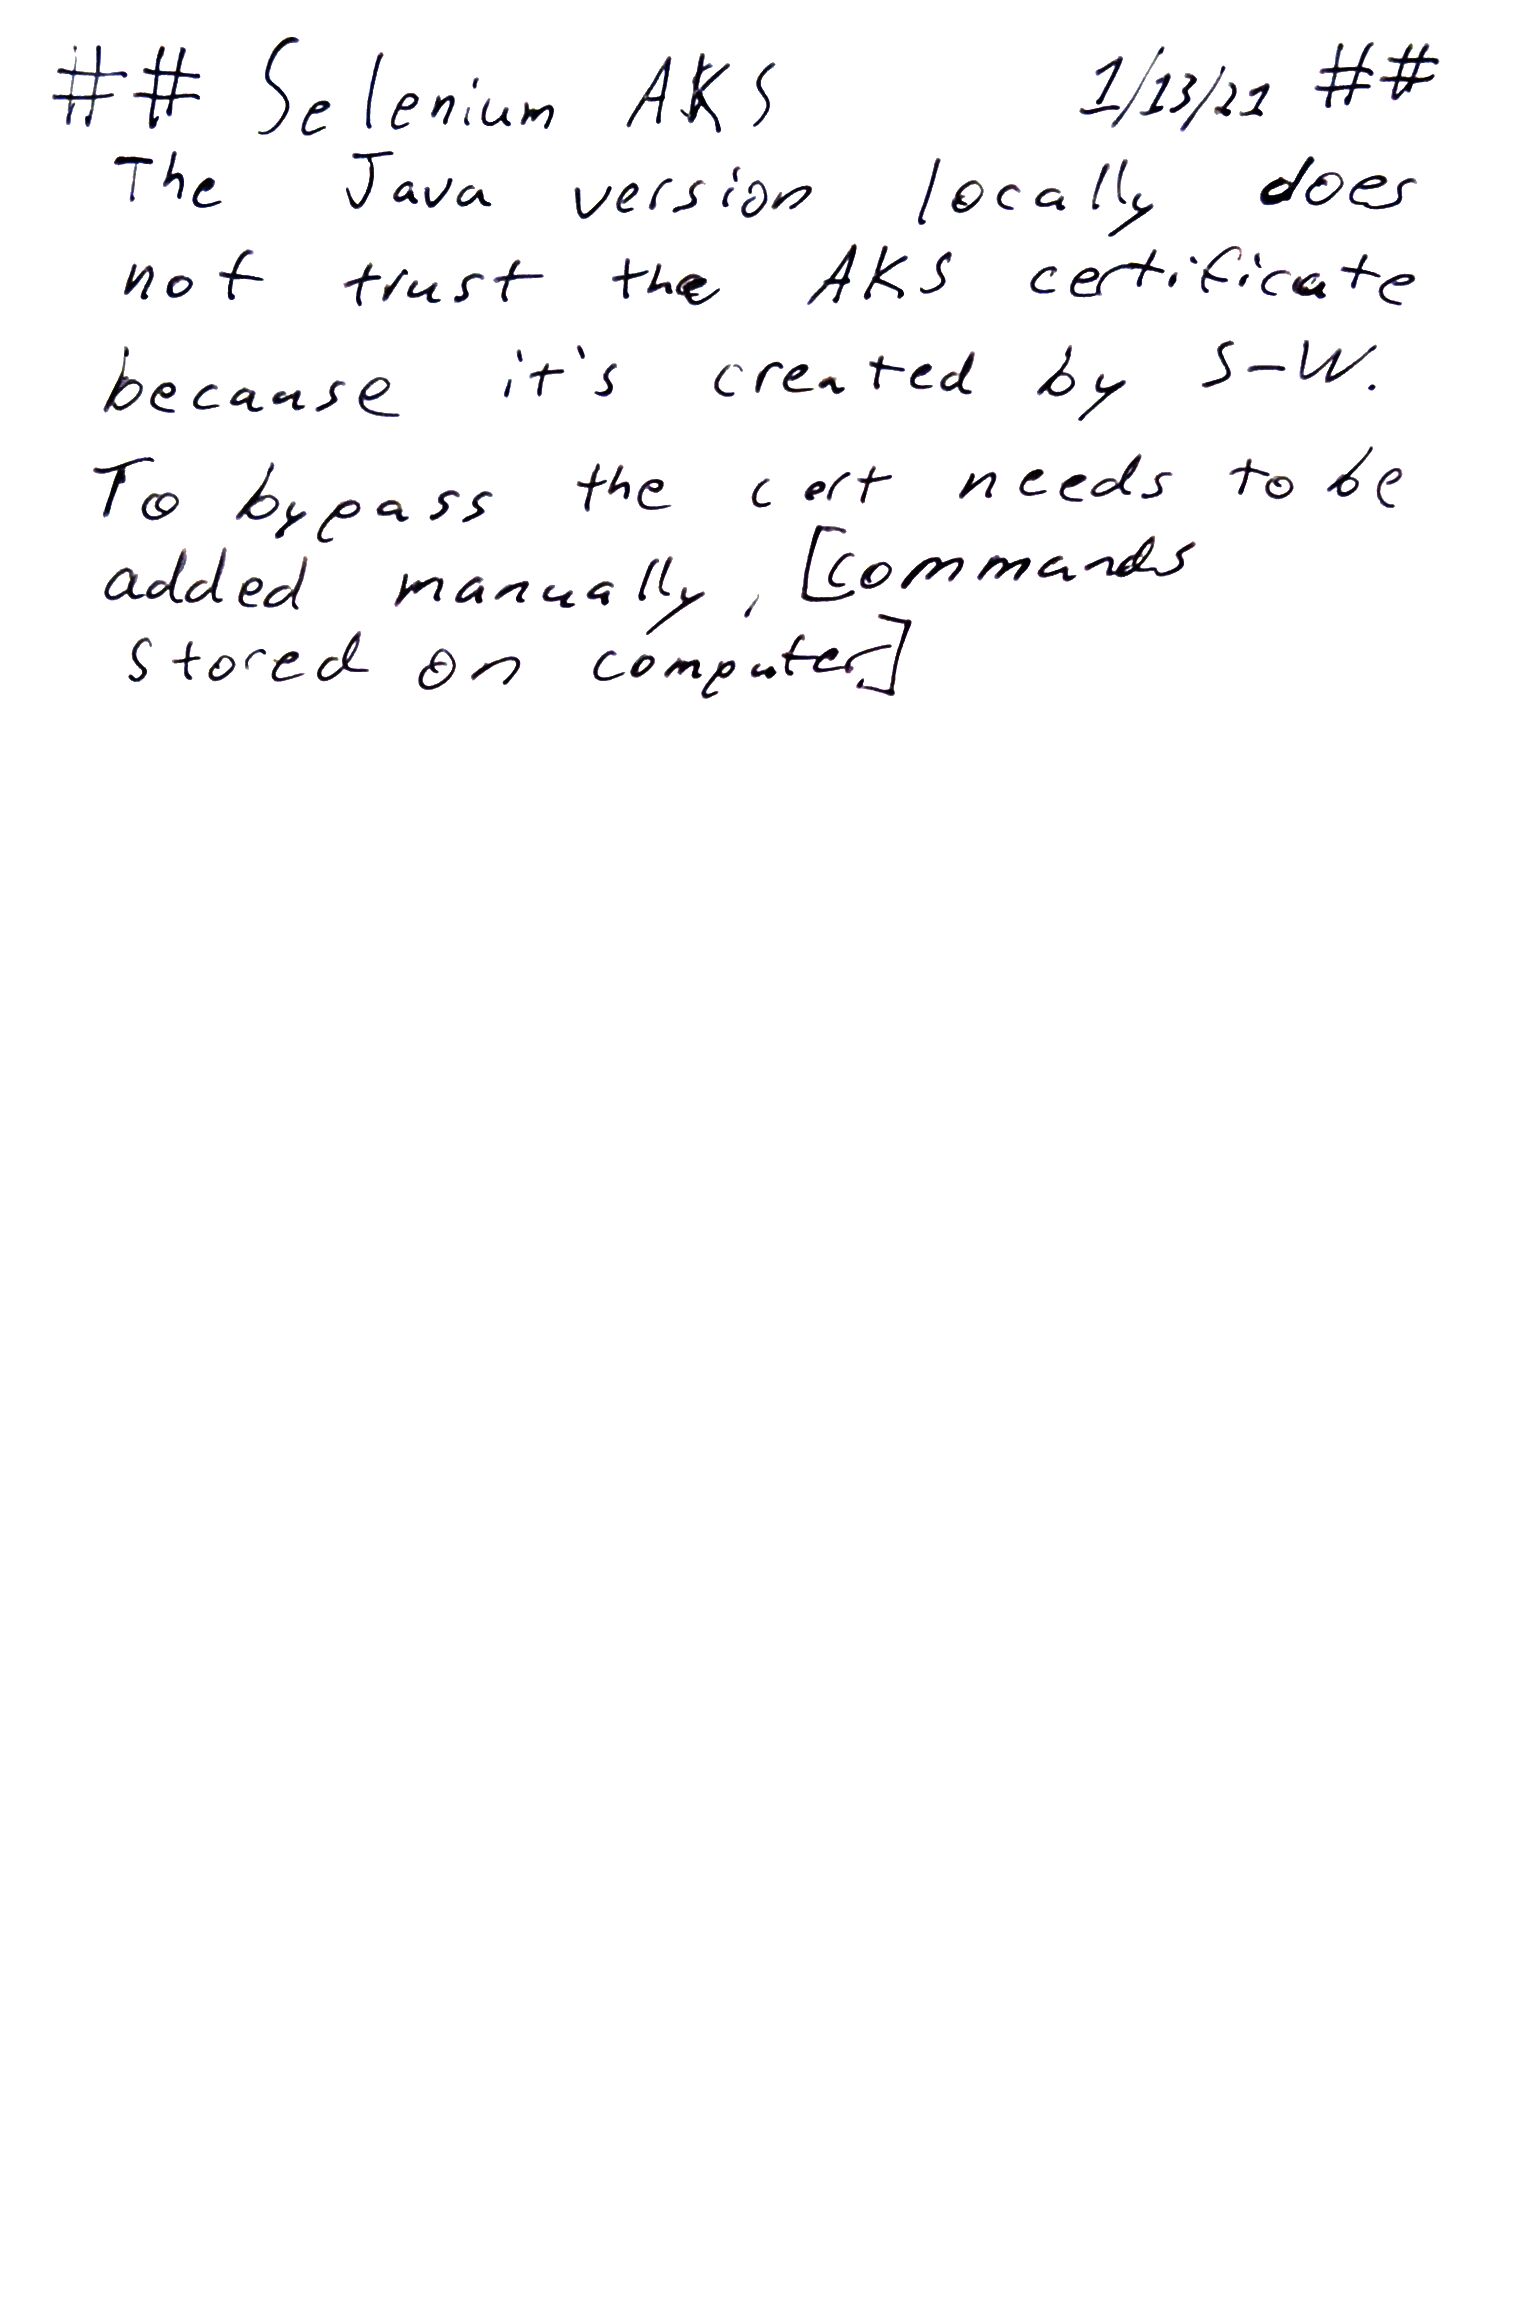 ## Selenium AKS 1/13/21 ##
The Java version locally does
not trust the AKS certificate
because it's created by S-W.
To bypass the cert needs to be
added manually, [commands
stored on computer.]